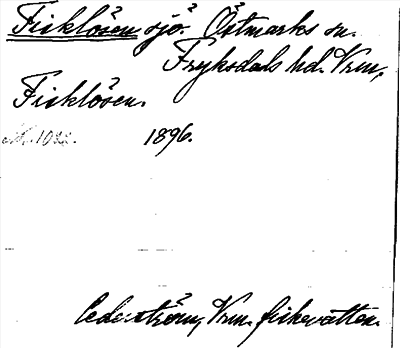 Fisklösen sjö. Östmarks sn.
Fryksdals hd. Vrm.
Fisklösen.
1896.
Cederström, Vrm. fiskevatten.